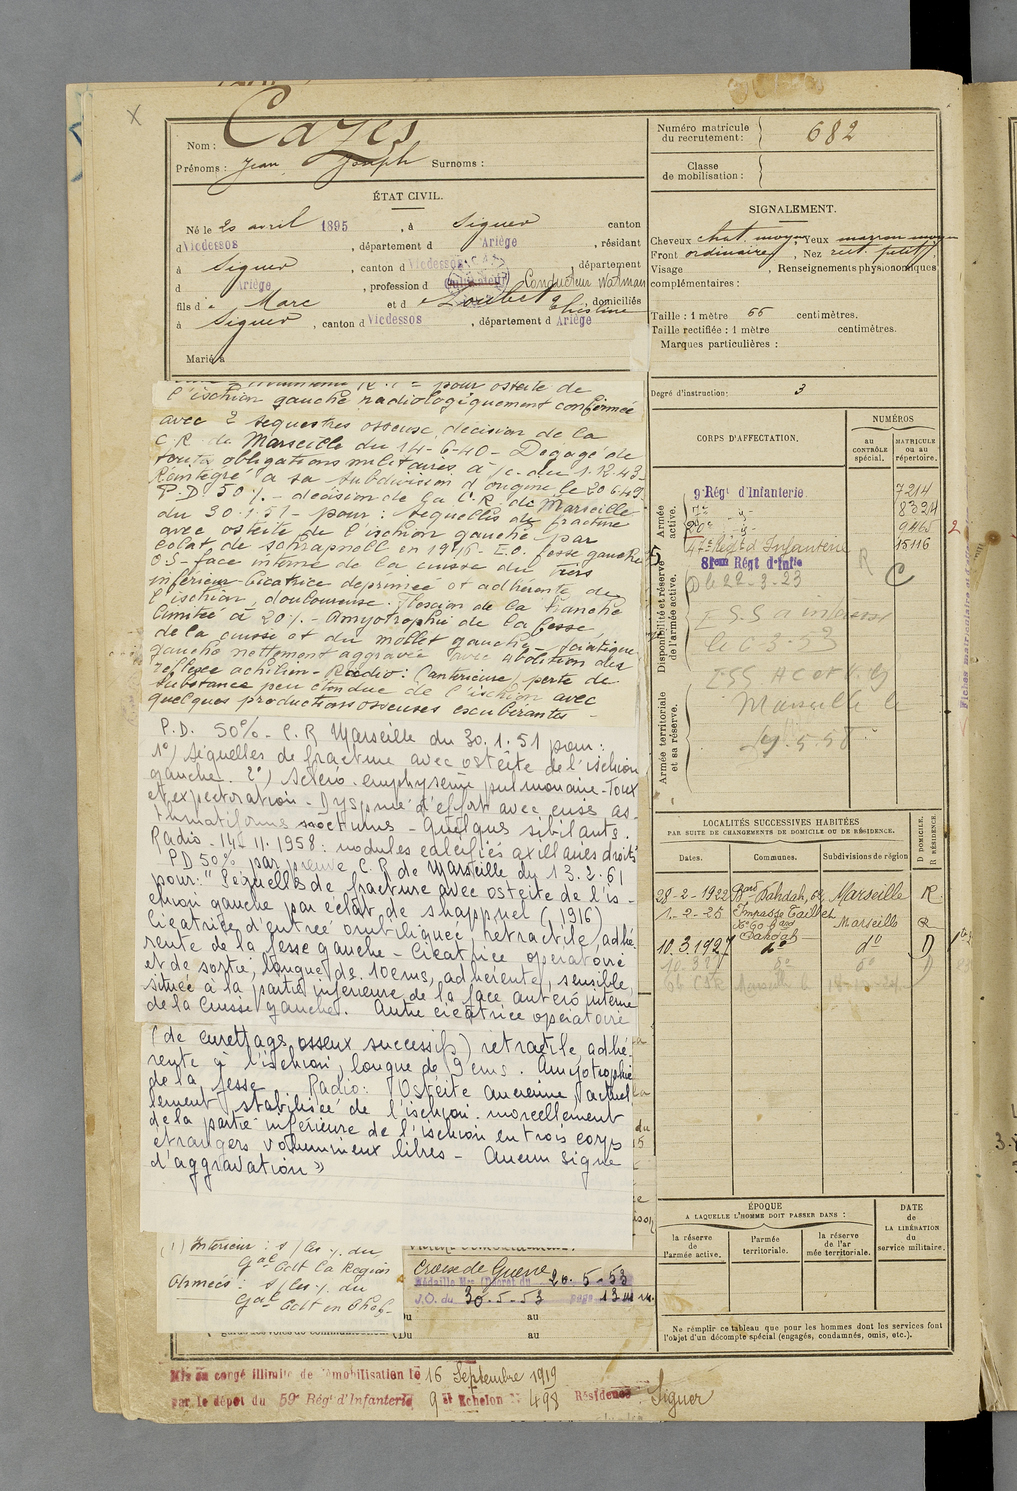 Cazes
Nom :
Prénoms : Jean Joseph Surnoms :
ÉTAT CIVIL.
Né le 20 avril 1895, à Siguer canton
d Vicdessos, département d Ariège, résidant
à Siguer, canton d Vicdessos, département
d Ariège, profession d Cultivateur Conducteur Watman
fils d Marc et d Loubet Christine, domiciliés
à Siguer, canton d Vicdessos, département d Ariège
Marié à
Numéro matricule
du recrutement : 682
Classe
de mobilisation :
SIGNALEMENT.
Cheveux chat. moyen, Yeux marron moyen
Front ordinaire, Nez rect. petit,
Visage , Renseignements physionomiques
complémentaires :
Taille : 1 mètre 66 centimètres.
Taille rectifiée : 1 mètre centimètres.
Marques particulières :
Degré d'instruction : 3
pour ostéite de
l'ischion gauche radiologiquement confirmée
avec 2 sequestres osseuse, décision de la
C R de Marseille du 14-6-40 - Dégagé de
toutes obligations militaires à /c. du 1.12.43.
Réintégré à sa subdivision d'origine le 20.6.49.
P.D 50 % - décision de la C.R. de Marseille
du 30.1.51 - pour : sequelles de fracture
avec ostéite de l'ischion gauche par
éclat de schrapnell en 1916 - E.O. fesse gauche
O.S. face interne de la cuisse du tiers
inférieur. Cicatrice déprimée et adhérente de
l'ischion, douloureuse. Flexion de la hanche
limitée à 20 % - Amyotrophie de la fesse
de la cuisse et du mollet gauche - Sciatique
gauche nettement aggravée avec abolition du
réflexe achilien - Radio : (antérieure) perte de
substance peu étendue de l'ischion avec
quelques productions osseuses exubérantes -
P.D. 50% - C.R Marseille du 30.1.51 pour :
1°) Séquelles de fracture avec ostéite de l'ischion
gauche. 2°) Scléro emphysème pulmonaire - Toux
et expectoration - Dyspnée d'effort avec crises as-
thmatiformes nocturnes - Quelques sibilants.
Radio - 14.11.1958 : nodules calcifiés axillaires droits
PD 50% par preuve C.R de Marseille du 13.2.61
pour : "Séquelles de fracture avec ostéite de l'is-
chion gauche par éclat de shappnel (1916)
Cicatrice d'entrée ombiliquée, rétractile, adhé-
rente de la fesse gauche - Cicatrice opératoire
et de sortie, longue de 10 cms, adhérente, sensible,
située à la partie inférieure de la face antéro interne
de la Cuisse gauche. Autre cicatrice opératoire
(de curettages osseux successifs) rétractile, adhé-
rente à l'ischion, longue de 9 cms. Amyotrophie
de la fesse Radio : Ostéite ancienne, actuel-
lement stabilisée de l'ischion. morcellement
de la partie inférieure de l'ischion en trois corps
étrangers volumineux libres - Aucun signe
d'aggravation »
(1) Intérieur : s/ les % du
Gal Cdt la Région
Armées : s/ les % du
Gal Cdt en Chef -
Croix de Guerre
Médaille Mre (Décret du 20-5-53
J.O. du 30-5-53 page
Du au
(Du au
CORPS D'AFFECTATION.
NUMÉROS
au
CONTRÔLE
spécial.
MATRICULE
ou au
répertoire.
Armée
active.
9e Régt d'Infanterie 7214
8324
9165 2
Régt d'Infanterie 15116
81em Régt d'Infie
Disponibilité et réserve
de l'armée active.
D le 22-3-23
R C
le 6-3-53
Marseille le
Armée territoriale
et sa réserve.
LOCALITÉS SUCCESSIVES HABITÉES
PAR SUITE DE CHANGEMENTS DE DOMICILE OU DE RÉSIDENCE.
D DOMICILE.
R RÉSIDENCE.
Dates. Communes. Subdivisions de région
28-2-1922 Bard Dahdah, 62 Marseille R.
1-2-25 Impasse Taillet Marseille R
Dahdah
10.3.1927 do do D
Marseille
ÉPOQUE
A LAQUELLE L'HOMME DOIT PASSER DANS :
la réserve
de
l'armée active.
l'armée
territoriale.
la réserve
de l'ar
mée territoriale.
DATE
de
LA LIBÉRATION
du
service militaire.
Ne remplir ce tableau que pour les hommes dont les services font
l'objet d'un décompte spécial (engagés, condamnés, omis, etc.).
Mis en congé illimité de démobilisation le 16 Septembre 1919
par le dépôt du 59e Régt d'Infanterie 9 et Echelon N° 498 Résidence Siguer